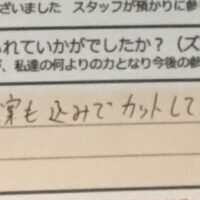 ざいました スタッフが預かりに参
られていかがでしたか？（ズ
が、私達の何よりの力となり今後の参
案も込みでカットして